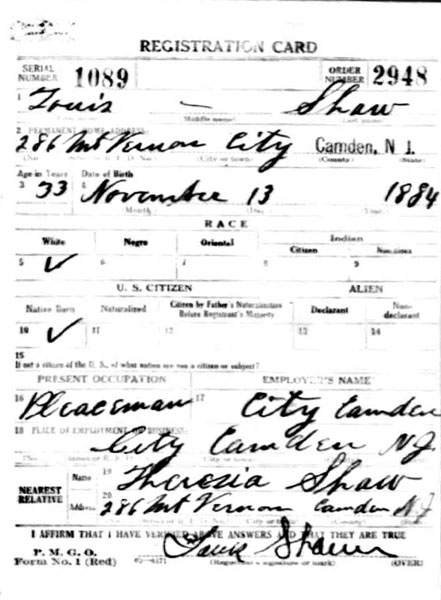 REGISTRATION CARD
SERIAL NUMBER 1089 ORDER NUMBER 2948
1 Louis — Shaw
(Middle name)
2 PERMANENT HOME ADDRESS:
286 Mt Vernon City Camden, N J.
(No.) (City or town) (County) (State)
Age in Years Date of Birth
3 33 4 November 13 1884
(Month) (Day) (Year)
RACE
White Negro Oriental Indian
Citizen Noncitizen
5 ✓ 6 7 8 9
U. S. CITIZEN ALIEN
Native Born Naturalized Citizen by Father's Naturalization Before Registrant's Majority Declarant Non-declarant
10 ✓ 11 12 13 14
15
If not a citizen of the U. S., of what nation are you a citizen or subject?
PRESENT OCCUPATION EMPLOYER'S NAME
16 Policesman 17 City Camden
18 PLACE OF EMPLOYMENT OR BUSINESS:
City Camden NJ.
NEAREST RELATIVE Name 19 Theresia Shaw
Address 20 286 Mt Vernon Camden NJ
I AFFIRM THAT I HAVE VERIFIED ABOVE ANSWERS AND THAT THEY ARE TRUE
P. M. G. O.
Form No. 1 (Red) Louis Shaw
(Registrant's signature or mark) (OVER)